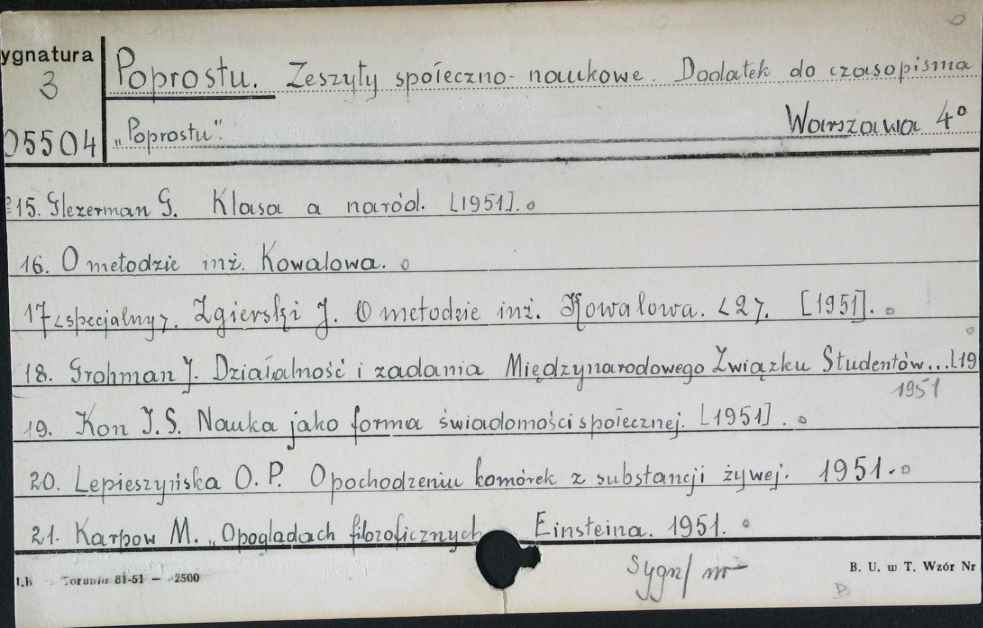 ygnatura
3
05504
Poprostu. Zeszyty społeczno-naukowe. Dodatek do czasopisma
„Poprostu". Warszawa 4°
15. Glezerman G. Klasa a naród. [1951].
16. O metodzie inż. Kowalowa.
17<specjalny>. Zgierski J. O metodzie inż. Kowalowa. <2>. [1951].
18. Grohman J. Działalność i zadania Międzynarodowego Związku Studentów...[19
1951
19. Kon I.S. Nauka jako forma świadomości społecznej. [1951].
20. Lepieszyńska O. P. O pochodzeniu komórek z substancji żywej. 1951.
21. Karpow M. „O poglądach filozoficznych Einsteina. 1951.
Toruniu 81-51 — 2500
Sygn/ nr
B. U. w T. Wzór Nr